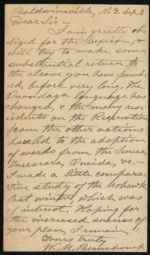 Baldwinsville, N.Y. Sep. 3
Dear Sir –
I am greatly ob-
liged for the Lexicon, &
will try to make some
substantial return to
the alcove you have found-
ed, before very long. The
Onondaga language has
changed, & the motley res-
idents on the Reservation
from the other nations
has led to the adoption
of words from the Seneca
Tuscarora, Oneida, &c. –
I made a little compara-
tive study of the Mohawk
last winter which was
of interest. Hoping for
the increased success of
your plan, I remain,
Yours truly
W. M. Beauchamp